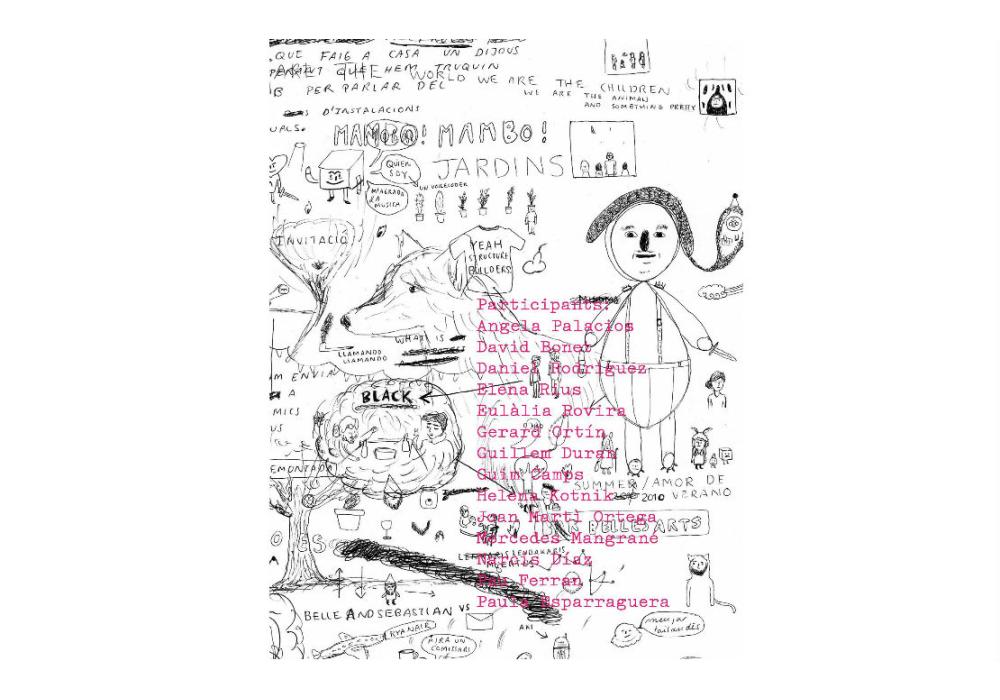 QUE FAIG A CASA UN DIJOUS
QUE HEM TRUQUIN
PER PARLAR DEL
WORLD WE ARE THE CHILDREN
WE ARE THE ANIMALS
AND SOMETHING PRETTY
D'INSTALACIONS
MAMBO! MAMBO!
JARDINS
QUIEN
SOY
M'AGRADA
LA
MUSICA
INVITACIÓ
YEAH
STRUCTURE
BUILDERS
2009
WHAT IS
LLAMANDO
LLAMANDO
M ENVIA
A
MICS
BLACK
Participants:
Angela Palacios
David Boner
Daniel Rodriguez
Elena Rius
Eulàlia Rovira
Gerard Ortín
Guillem Duran
Guim Camps
Helena Kotnik
Joan Martì Ortega
Mercedes Mangrané
Narcís Díaz
Pau Ferran
Paula Esparraguera
SUMMER/AMOR DE
2010 VERANO
BELLES ARTS
EMONTADA
BELLE AND SEBASTIAN VS
RYANAIR
FIRA UN
COMISSARI
AKI
menjar
tailandès